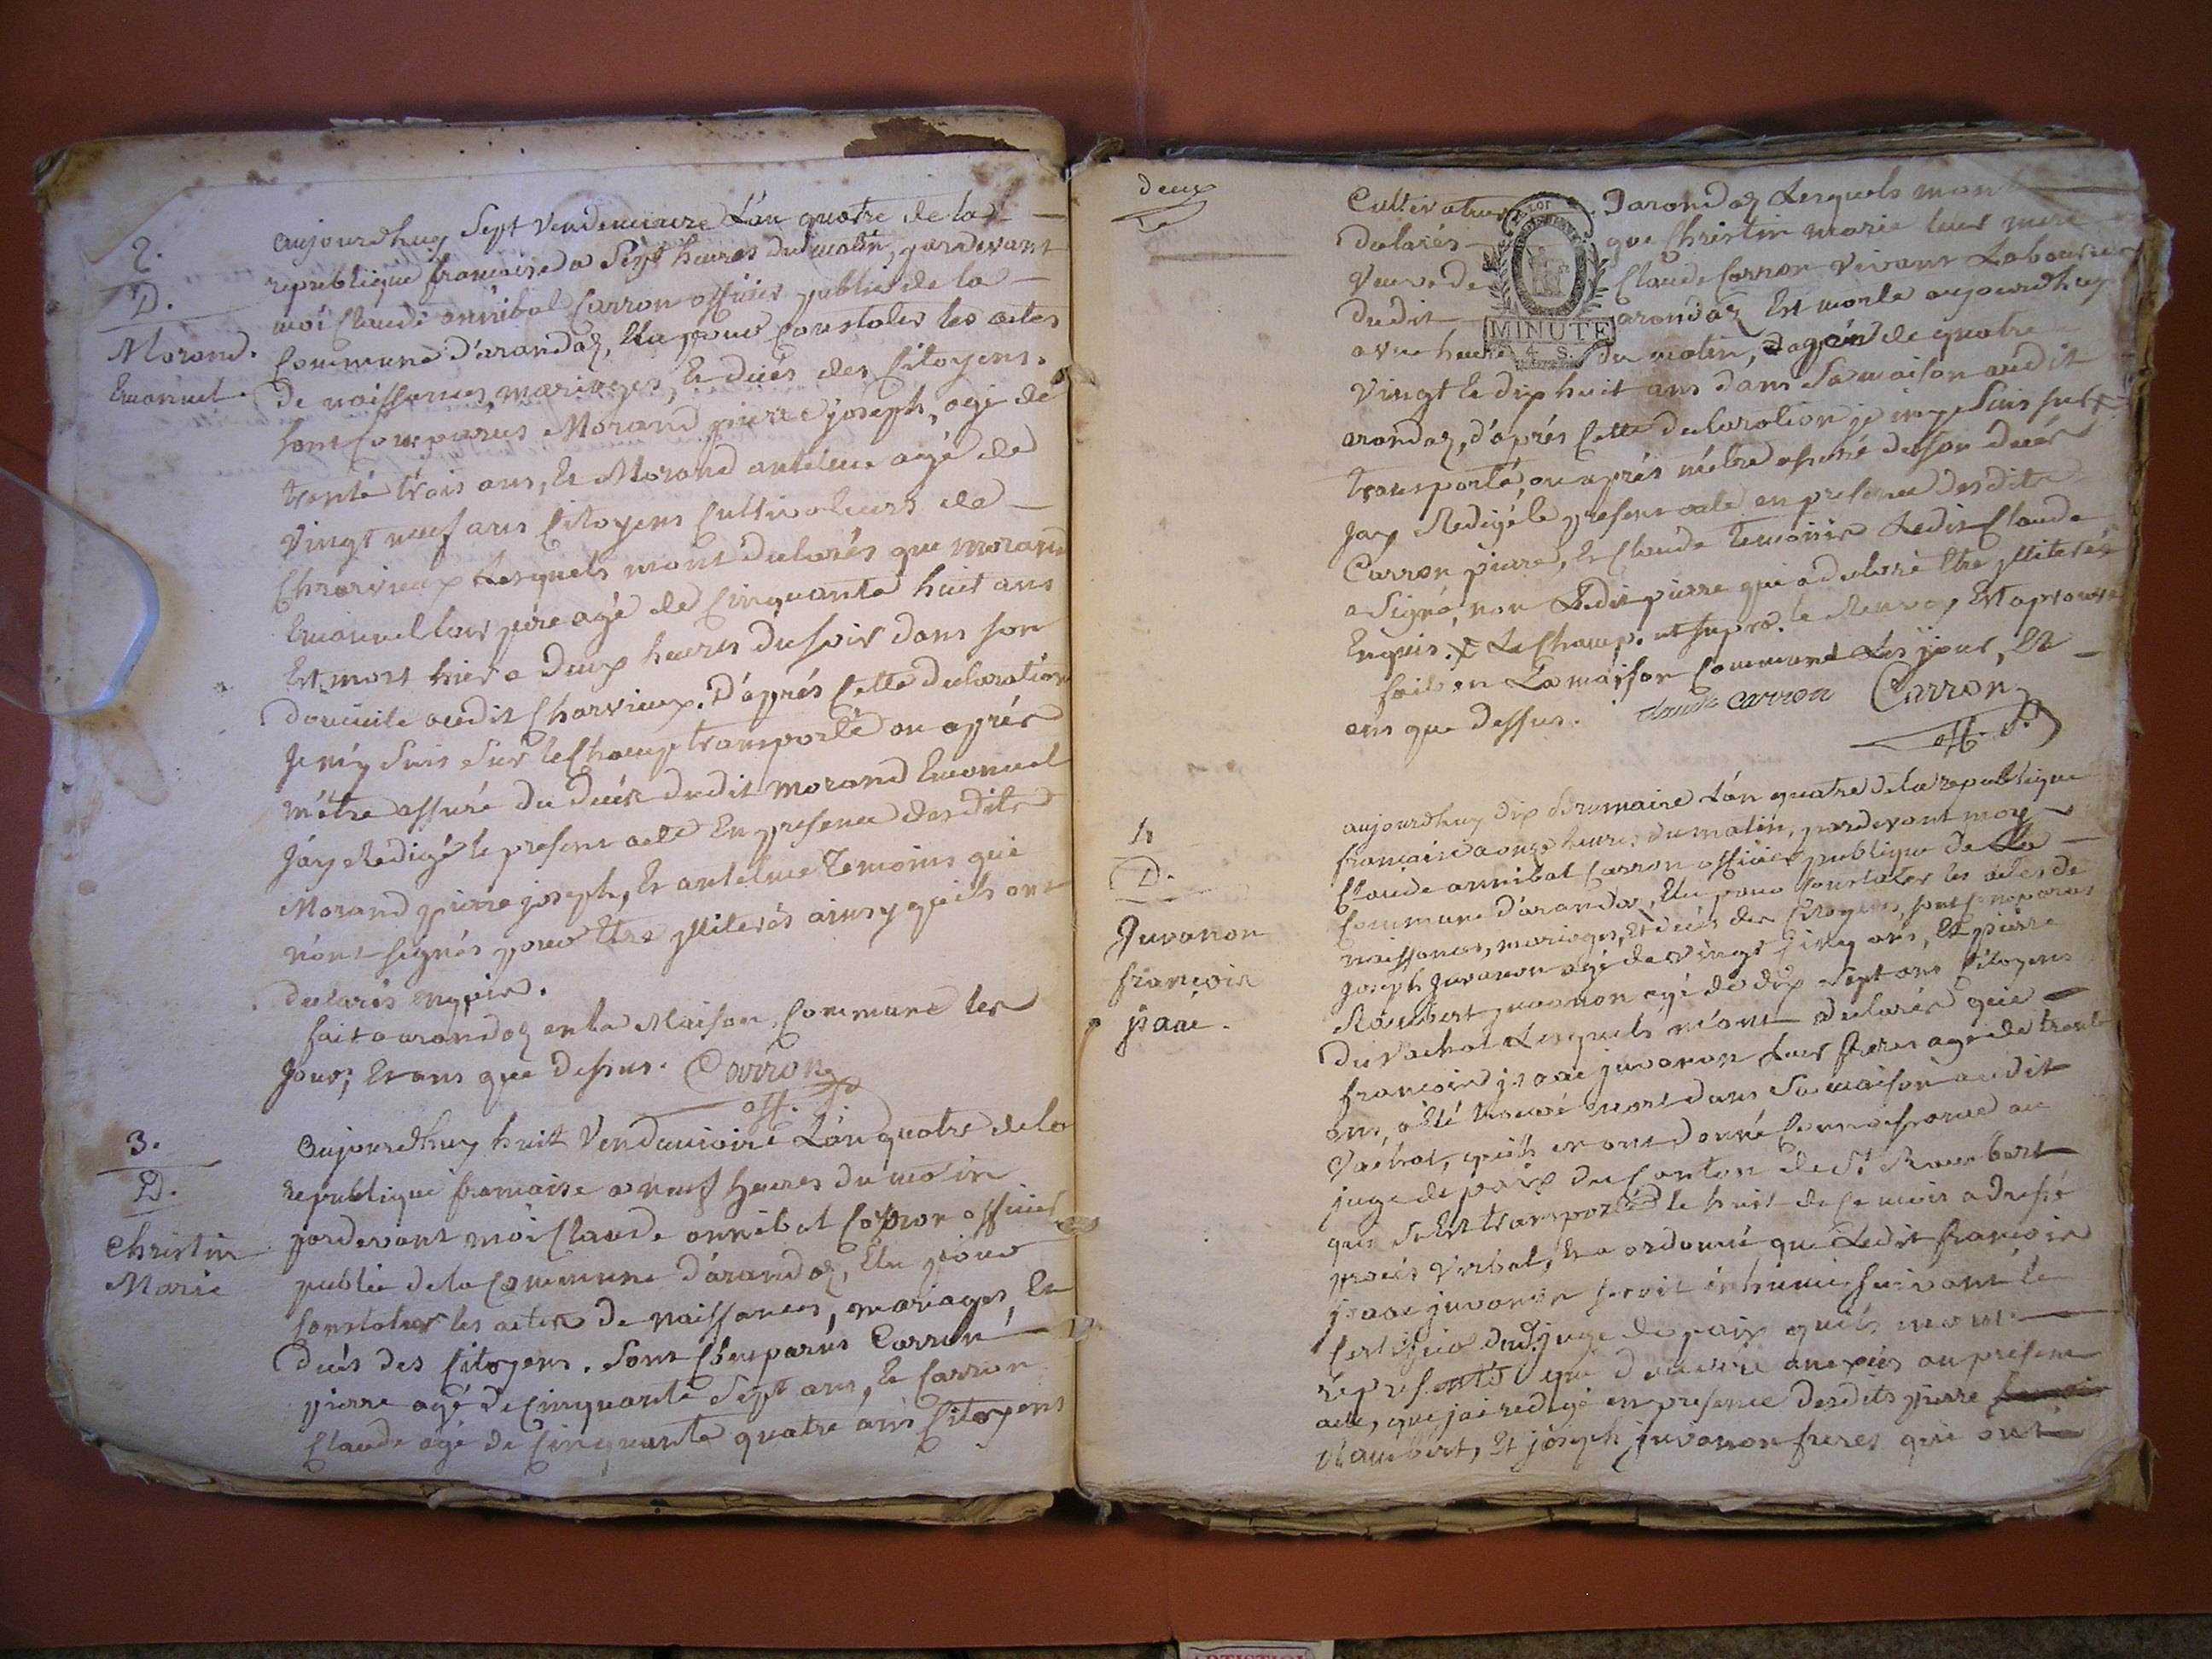 2.
D.
Morand.
Emanuel.
aujourdhuy Sept Vendemiaire L'an quatre de la
republique francaise a Sept heures du matin, pardevant
moi Claude annibal Carron officier public de la
Commune d'arandaz, Elu pour Constater les actes
de naissances, mariages, Et décés des Citoyens.
Sont Comparus Morand pierre joseph, agé de
trente trois ans, Et Morand antelme agé de
Vingt neuf ans Citoyens Cultivateurs de
Charvieux Lesquels mont declarés que morand
Emanuel leur pére agé de Cinquante huit ans
Est mort hier a deux heures du soir dans son
domicile audit Charvieux. D'aprés Cette declaration
Je m'y Suis Sur le Champ transporté ou aprés
m'être assuré du decés dudit morand Emanuel
J'ay Redigé le present acte En presence desdits
Morand pierre joseph, Et antelme Temoins qui
n'ont signés pour Etre jlliterés ainsy qu'ils ont
declarés enquis.
fait a arandaz en la Maison Commune les
Jour, Et ans que dessus. Carron
off. p.
3.
D.
Christin
Marie
aujourdhuy huit Vendemiaire L'an quatre de la
republique francaise a neuf heures du matin
pardevant moi Claude annibal Carron officier
public de la Commune d'arandaz, Elu pour
Constater les actes de naissances, mariages, Et
décés des Citoyens. Sont Comparus Carron
pierre agé de Cinquante Sept ans, Et Carron
Claude agé de Cinquante quatre ans Citoyens
deux
Cultivateurs Darandaz Lesquels mont
declarés que Christin marie leur mere
Veuve de Claude Carron Vivant Laboureur
dudit arandaz Est morte aujourdhuy
a une heure du matin, agée de quatre
MINUTE
4. S.
Vingt et dix huit ans dans Sa maison audit
arandaz, d'aprés Cette declaration je my Suis
transporté, ou aprés m'être assuré de son decés
Jay Redigé le present acte en presence desdits
Carron pierre, Et Claude Temoins Ledit Claude
a Signé, non Ledit pierre qui a declaré Etre jlliteré
Enquis. Le Champ. ut supra. le Renvoy Est aprouvé
fait en La maison Commune Les jour, Et
ans que dessus. Claude Carron Carron
off. p.
4
D.
Juvanon
françois
jsaac.
aujourdhuy dix Brumaire L'an quatre de la republique
française a onze heures du matin, pardevant moy
Claude annibal Carron officier publique de La
Commune d'arandas, Elu pour Constater les actes de
naissances, mariages, Et décés des Citoyens, sont comparus
Joseph Juvanon agé de vingt Cinq ans, Et pierre
Rambert juvanon agé de dix Sept ans Citoyens
du vachat Lesquels m'ont declarés que
francois jsaac juvanon Leur freres agé de trente
ans, a été trouvé mort dans Sa maison audit
Vachat, qu'ils en ont donné Connoissance au
juge de paix du Canton de St Rambert
qui S'est transporté le huit de ce mois a dressé
procés Verbal, Et a ordonné que Ledit francois
jsaac juvanon seroit inhumé suivant le
Certificat dud. juge de paix qu'ils m'ont
representé qui demeure anexés au present
acte, que j'ai redigé en presence desdits pierre
Rambert, Et joseph juvanon freres qui ont